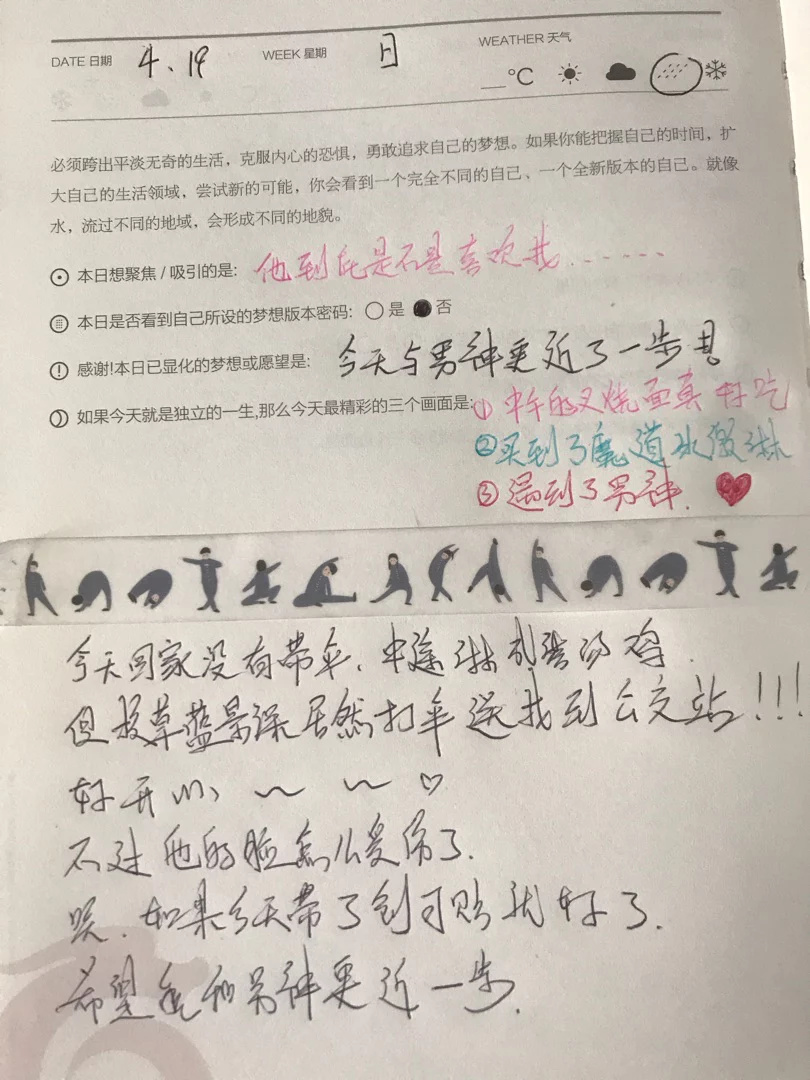 DATE 日期 4、19 WEEK 星期 日 WEATHER 天气
__°C
必须跨出平淡无奇的生活，克服内心的恐惧，勇敢追求自己的梦想。如果你能把握自己的时间，扩
大自己的生活领域，尝试新的可能，你会看到一个完全不同的自己、一个全新版本的自己。就像
水，流过不同的地域，会形成不同的地貌。
本日想聚焦 / 吸引的是: 他到底是不是喜欢我……
本日是否看到自己所设的梦想版本密码: 是 否
感谢!本日已显化的梦想或愿望是: 今天与男神更近了一步!
如果今天就是独立的一生,那么今天最精彩的三个画面是: ①中午的叉烧面真好吃
②买到了魔道冰激淋
③遇到了男神.
今天回家没有带伞、中途淋到落汤鸡.
但校草蓝景深居然打车送我到公交站!!!
好开心~~♡
不过他的脸怎么受伤了.
唉.如果今天带了创可贴就好了.
希望能和男神更近一步.